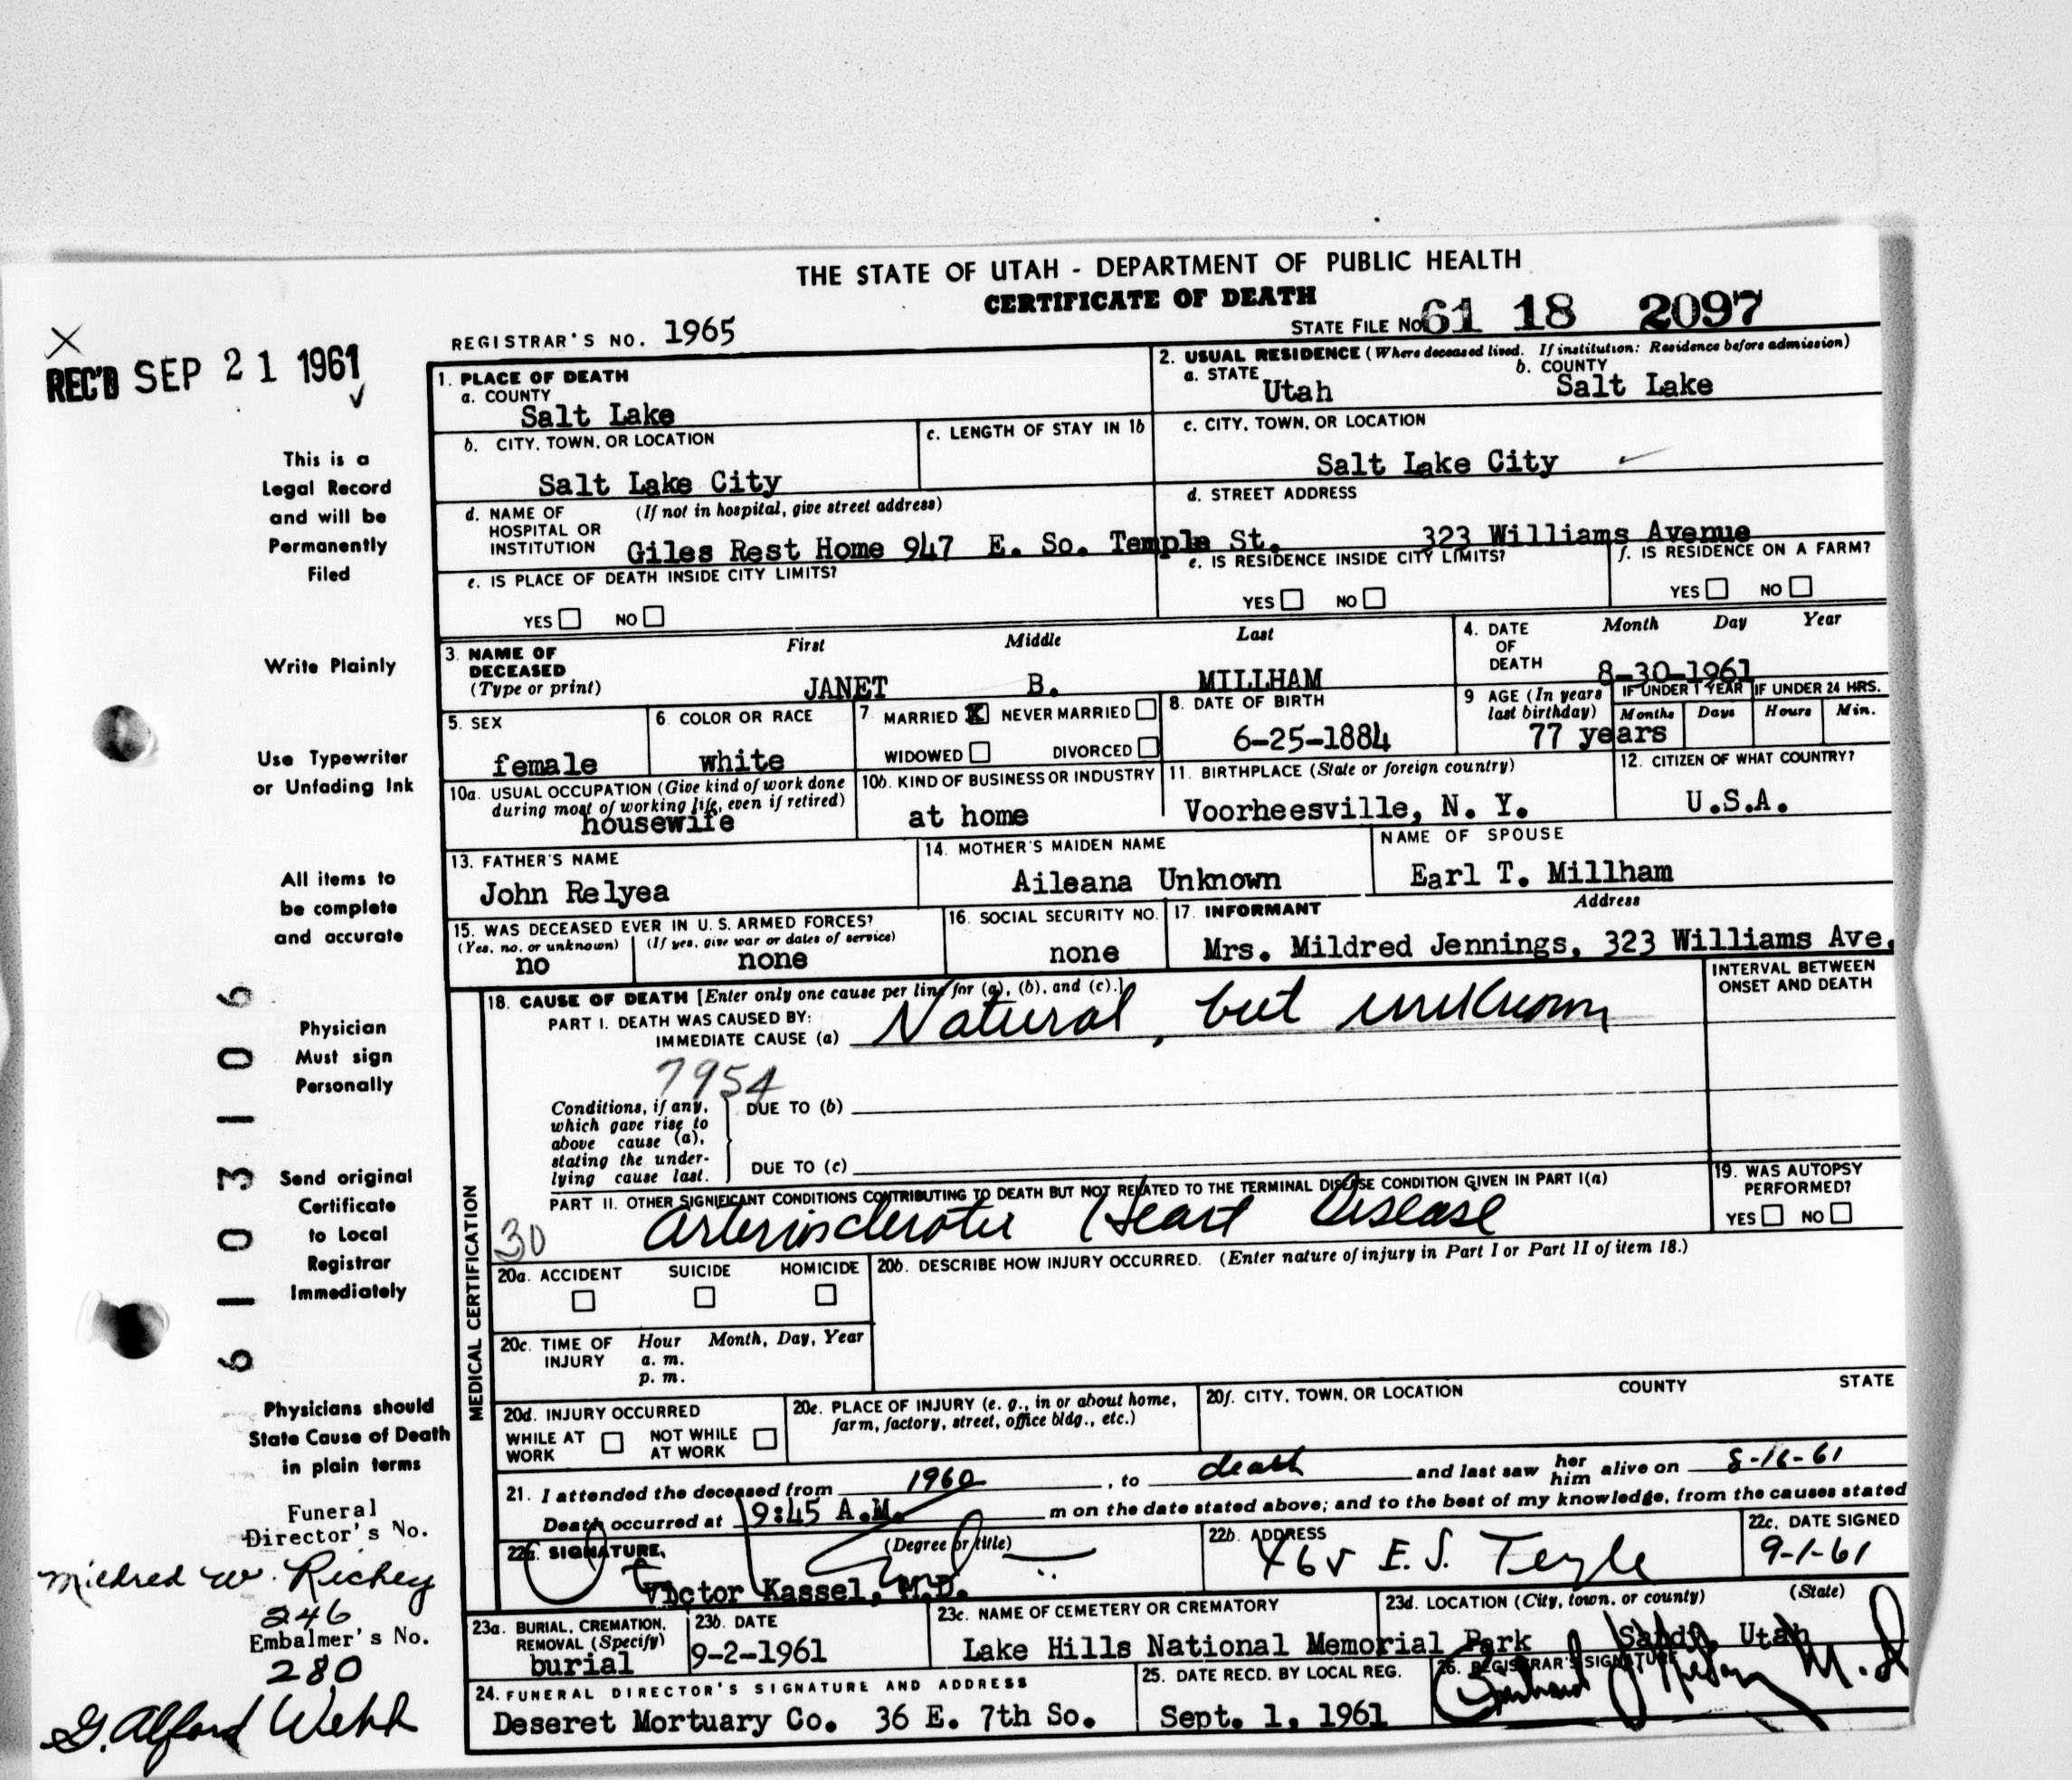 THE STATE OF UTAH - DEPARTMENT OF PUBLIC HEALTH
CERTIFICATE OF DEATH
REGISTRAR'S NO. 1965
STATE FILE NO. 61 18 2097
X
REC'D SEP 21 1961
This is a
Legal Record
and will be
Permanently
Filed
Write Plainly
Use Typewriter
or Unfading Ink
All items to
be complete
and accurate
Physician
Must sign
Personally
Send original
Certificate
to Local
Registrar
Immediately
Physicians should
State Cause of Death
in plain terms
Funeral
Director's No.
Mildred W. Richey
246
Embalmer's No.
280
G. Alford Webb
61031106
1. PLACE OF DEATH
a. COUNTY
Salt Lake
2. USUAL RESIDENCE (Where deceased lived. If institution: Residence before admission)
a. STATE b. COUNTY
Utah Salt Lake
b. CITY, TOWN, OR LOCATION
Salt Lake City
c. LENGTH OF STAY IN 1b
c. CITY, TOWN, OR LOCATION
Salt Lake City
d. NAME OF (If not in hospital, give street address)
HOSPITAL OR
INSTITUTION Giles Rest Home 947 E. So. Temple St.
d. STREET ADDRESS
323 Williams Avenue
e. IS PLACE OF DEATH INSIDE CITY LIMITS?
YES NO
e. IS RESIDENCE INSIDE CITY LIMITS?
YES NO
f. IS RESIDENCE ON A FARM?
YES NO
3. NAME OF First Middle Last
DECEASED
(Type or print) JANET B. MILLHAM
4. DATE Month Day Year
OF
DEATH 8-30-1961
5. SEX
female
6. COLOR OR RACE
white
7. MARRIED X NEVER MARRIED
WIDOWED DIVORCED
8. DATE OF BIRTH
6-25-1884
9 AGE (In years
last birthday)
77 years
IF UNDER 1 YEAR IF UNDER 24 HRS.
Months Days Hours Min.
10a. USUAL OCCUPATION (Give kind of work done
during most of working life, even if retired)
housewife
10b. KIND OF BUSINESS OR INDUSTRY
at home
11. BIRTHPLACE (State or foreign country)
Voorheesville, N. Y.
12. CITIZEN OF WHAT COUNTRY?
U.S.A.
13. FATHER'S NAME
John Relyea
14. MOTHER'S MAIDEN NAME
Aileana Unknown
NAME OF SPOUSE
Earl T. Millham
15. WAS DECEASED EVER IN U.S. ARMED FORCES?
(Yes, no, or unknown) (If yes, give war or dates of service)
no none
16. SOCIAL SECURITY NO.
none
17. INFORMANT Address
Mrs. Mildred Jennings, 323 Williams Ave.
MEDICAL CERTIFICATION
18. CAUSE OF DEATH [Enter only one cause per line for (a), (b), and (c).]
PART I. DEATH WAS CAUSED BY:
IMMEDIATE CAUSE (a) Natural, but unknown
INTERVAL BETWEEN
ONSET AND DEATH
7954
Conditions, if any,
which gave rise to
above cause (a),
stating the under-
lying cause last.
DUE TO (b)
DUE TO (c)
PART II. OTHER SIGNIFICANT CONDITIONS CONTRIBUTING TO DEATH BUT NOT RELATED TO THE TERMINAL DISEASE CONDITION GIVEN IN PART I(a)
30 Arteriosclerotic Heart Disease
19. WAS AUTOPSY
PERFORMED?
YES NO
20a. ACCIDENT SUICIDE HOMICIDE
20b. DESCRIBE HOW INJURY OCCURRED. (Enter nature of injury in Part I or Part II of item 18.)
20c. TIME OF Hour Month, Day, Year
INJURY a. m.
p. m.
20d. INJURY OCCURRED
WHILE AT NOT WHILE
WORK AT WORK
20e. PLACE OF INJURY (e. g., in or about home,
farm, factory, street, office bldg., etc.)
20f. CITY, TOWN, OR LOCATION COUNTY STATE
21. I attended the deceased from 1960, to death and last saw her him alive on 8-16-61
Death occurred at 9:45 A.M. m on the date stated above; and to the best of my knowledge, from the causes stated
22a. SIGNATURE, (Degree or title)
Victor Kassel, M.D.
22b. ADDRESS
465 E. S. Temple
22c. DATE SIGNED
9-1-61
23a. BURIAL, CREMATION,
REMOVAL (Specify)
burial
23b. DATE
9-2-1961
23c. NAME OF CEMETERY OR CREMATORY
Lake Hills National Memorial Park
23d. LOCATION (City, town, or county) (State)
Sandy, Utah
24. FUNERAL DIRECTOR'S SIGNATURE AND ADDRESS
Deseret Mortuary Co. 36 E. 7th So.
25. DATE RECD. BY LOCAL REG.
Sept. 1, 1961
26. REGISTRAR'S SIGNATURE
M.D